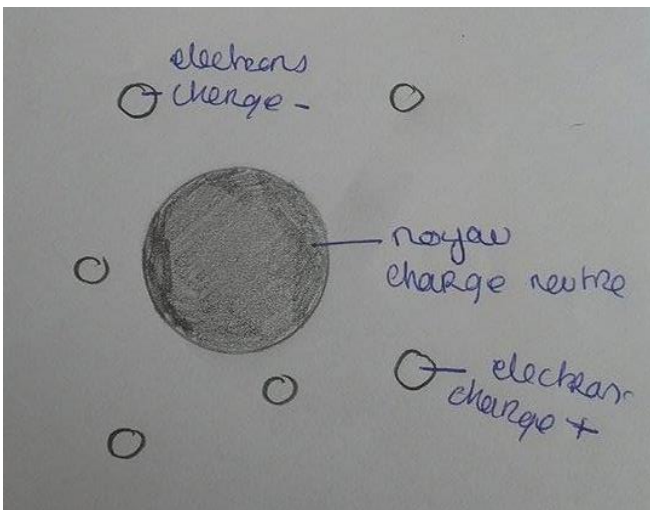 electrons
charge -
noyau
charge neutre
electron
charge +